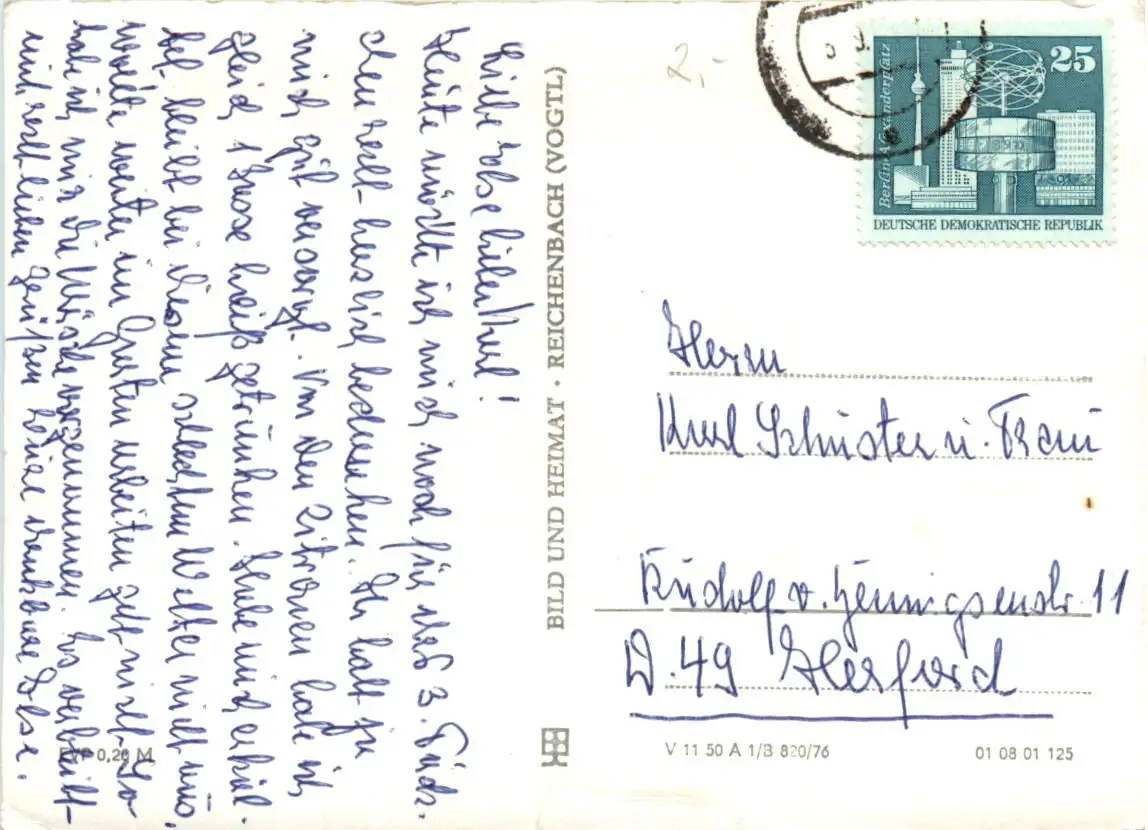 Liebe Ilse lieber Kurl!
Heute möchte ich mich noch für das 3. Päck-
chen recht herzlich bedanken. Ihr habt ja
mich gut versorgt. Von den Zitronen habe ich
gleich 1 heiß getrunken. Habe mich erkäl-
tet. bleibt bei diesem schlechten Wetter nicht aus,
wollte weiter im Garten arbeiten geht nicht. So
habe ich mir die Wäsche vorgenommen. Es verbleibt
mit recht lieben Grüßen Eure dankbare Else.
EVP 0,20 M
BILD UND HEIMAT · REICHENBACH (VOGTL)
2,-
Berlin-Alexanderplatz
25
DEUTSCHE DEMOKRATISCHE REPUBLIK
Herrn
Kurl Schuster u. Frau
Rudolf v. Henningsenstr. 11
D. 49 Herford
V 11 50 A 1/B 820/76
01 08 01 125